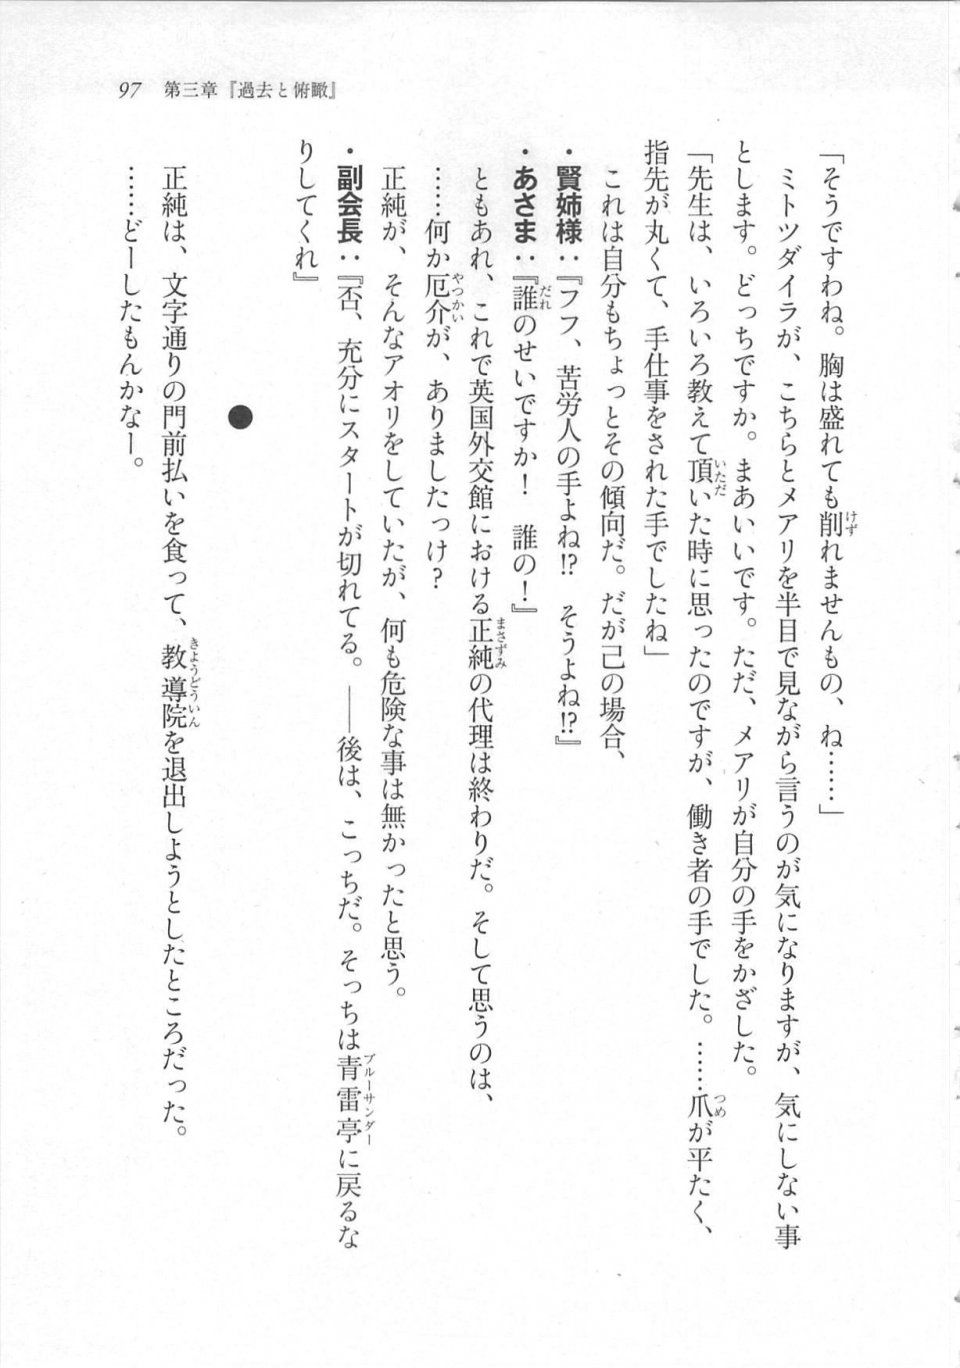 97 第三章『過去と俯瞰』
「そうですわね。胸は盛れても削れませんもの、ね……」
　ミトツダイラが、こちらとメアリを半目で見ながら言うのが気になりますが、気にしない事
とします。どっちですか。まあいいです。ただ、メアリが自分の手をかざした。
「先生は、いろいろ教えて頂いた時に思ったのですが、働き者の手でした。……爪が平たく、
指先が丸くて、手仕事をされた手でしたね」
　これは自分もちょっとその傾向だ。だが己の場合、
・賢姉様：『フフ、苦労人の手よね!?　そうよね!?』
・あさま：『誰のせいですか！　誰の！』
　ともあれ、これで英国外交館における正純の代理は終わりだ。そして思うのは、
　……何か厄介が、ありましたっけ？
　正純が、そんなアオリをしていたが、何も危険な事は無かったと思う。
・副会長：『否、充分にスタートが切れてる。――後は、こっちだ。そっちは青雷亭に戻るな
りしてくれ』
●
　正純は、文字通りの門前払いを食って、教導院を退出しようとしたところだった。
　……どーしたもんかなー。